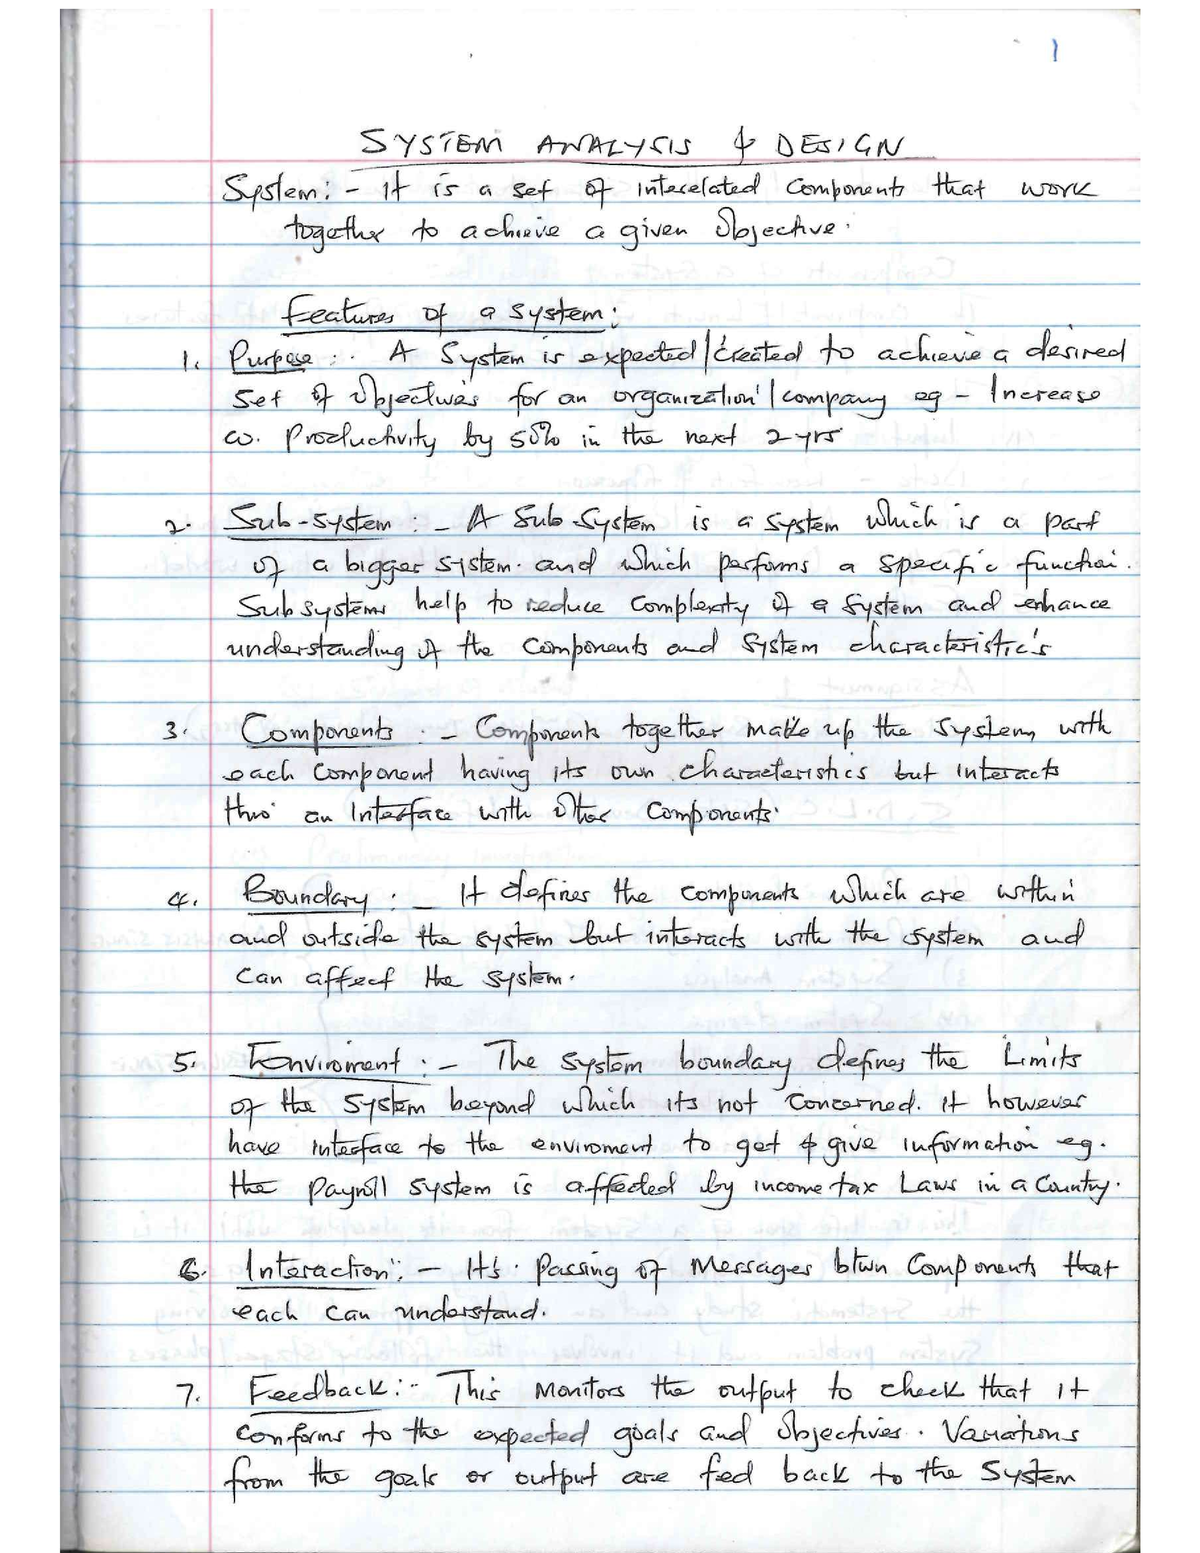 1
SYSTEM ANALYSIS & DESIGN
System: - It is a set of interelated components that work
together to achieve a given Objective.
Features of a system:
1. Purpose : . A System is expected/created to achieve a desired
Set of Objectives for an organization/company eg - Increase
co. Productivity by 50% in the next 2 yrs
2. Sub-system : - A Sub-System is a System which is a part
of a bigger system. and which performs a specific function.
Subsystems help to reduce complexity of a system and enhance
understanding of the components and system characteristic's
3. Components : - Components together make up the system, with
each component having its own characteristics but interacts
thro' an Interface with other components.
4. Boundary : - It defines the components which are within
and outside the system but interacts with the system and
can affect the system.
5. Enviroment : - The system boundary defines the Limits
of the system beyond which its not concerned. it however
have interface to the enviroment to get & give information eg.
the payroll system is affected by income tax Laws in a Country.
6. Interaction : - It's passing of messages btwn components that
each can understand.
7. Feedback : - This monitors the output to check that it
conforms to the expected goals and Objectives. Variations
from the goals or output are fed back to the System